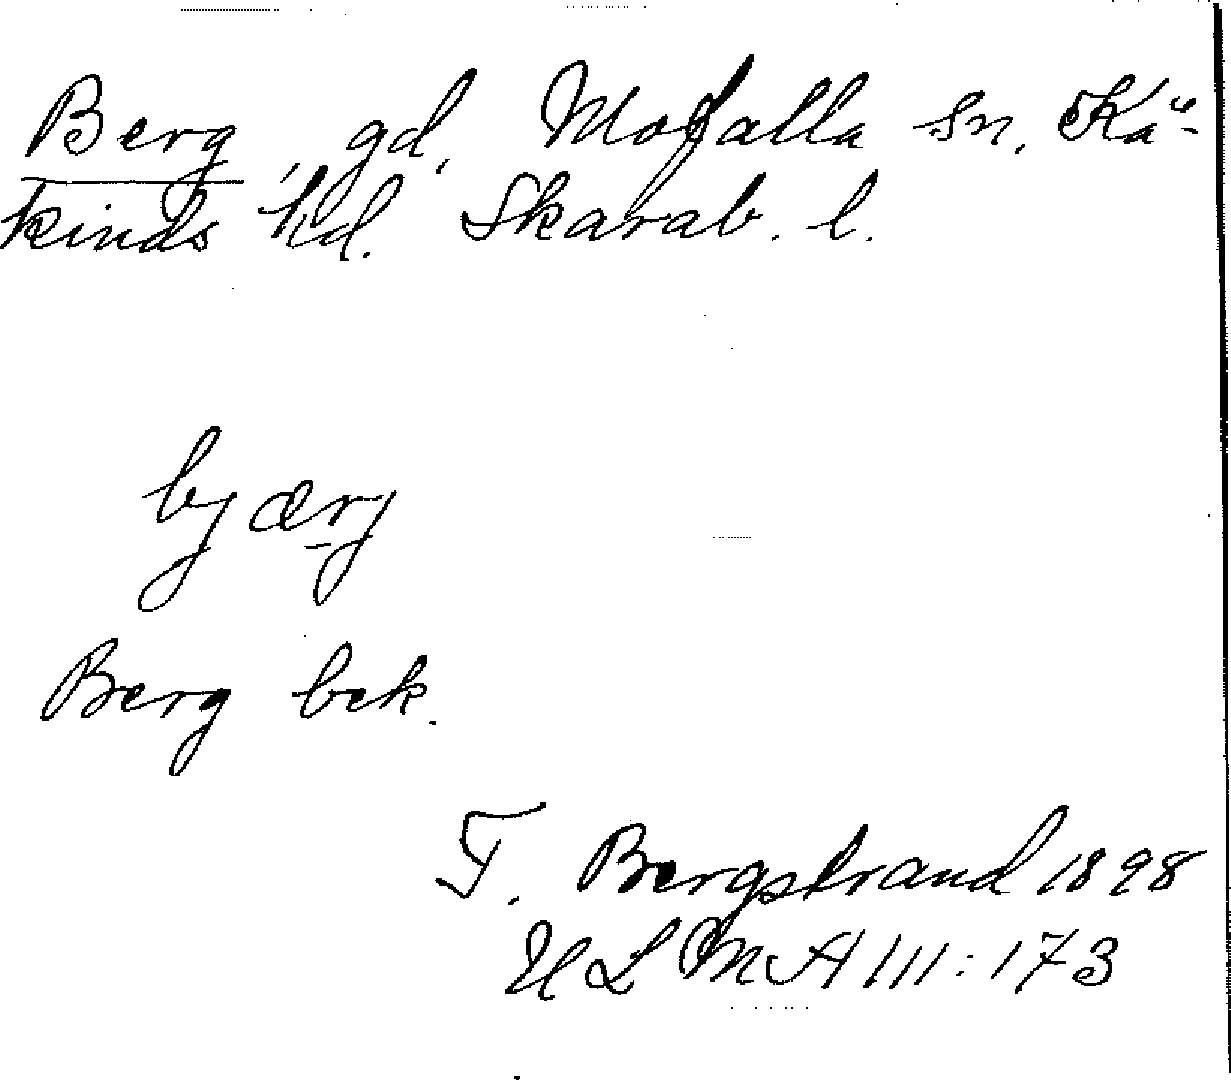 Berg, gd, Mofalla sn, Kå-
kinds hd. Skarab. l.
bjærj
Berg bek.
T. Bergstrand 1898
ULMA 111:173